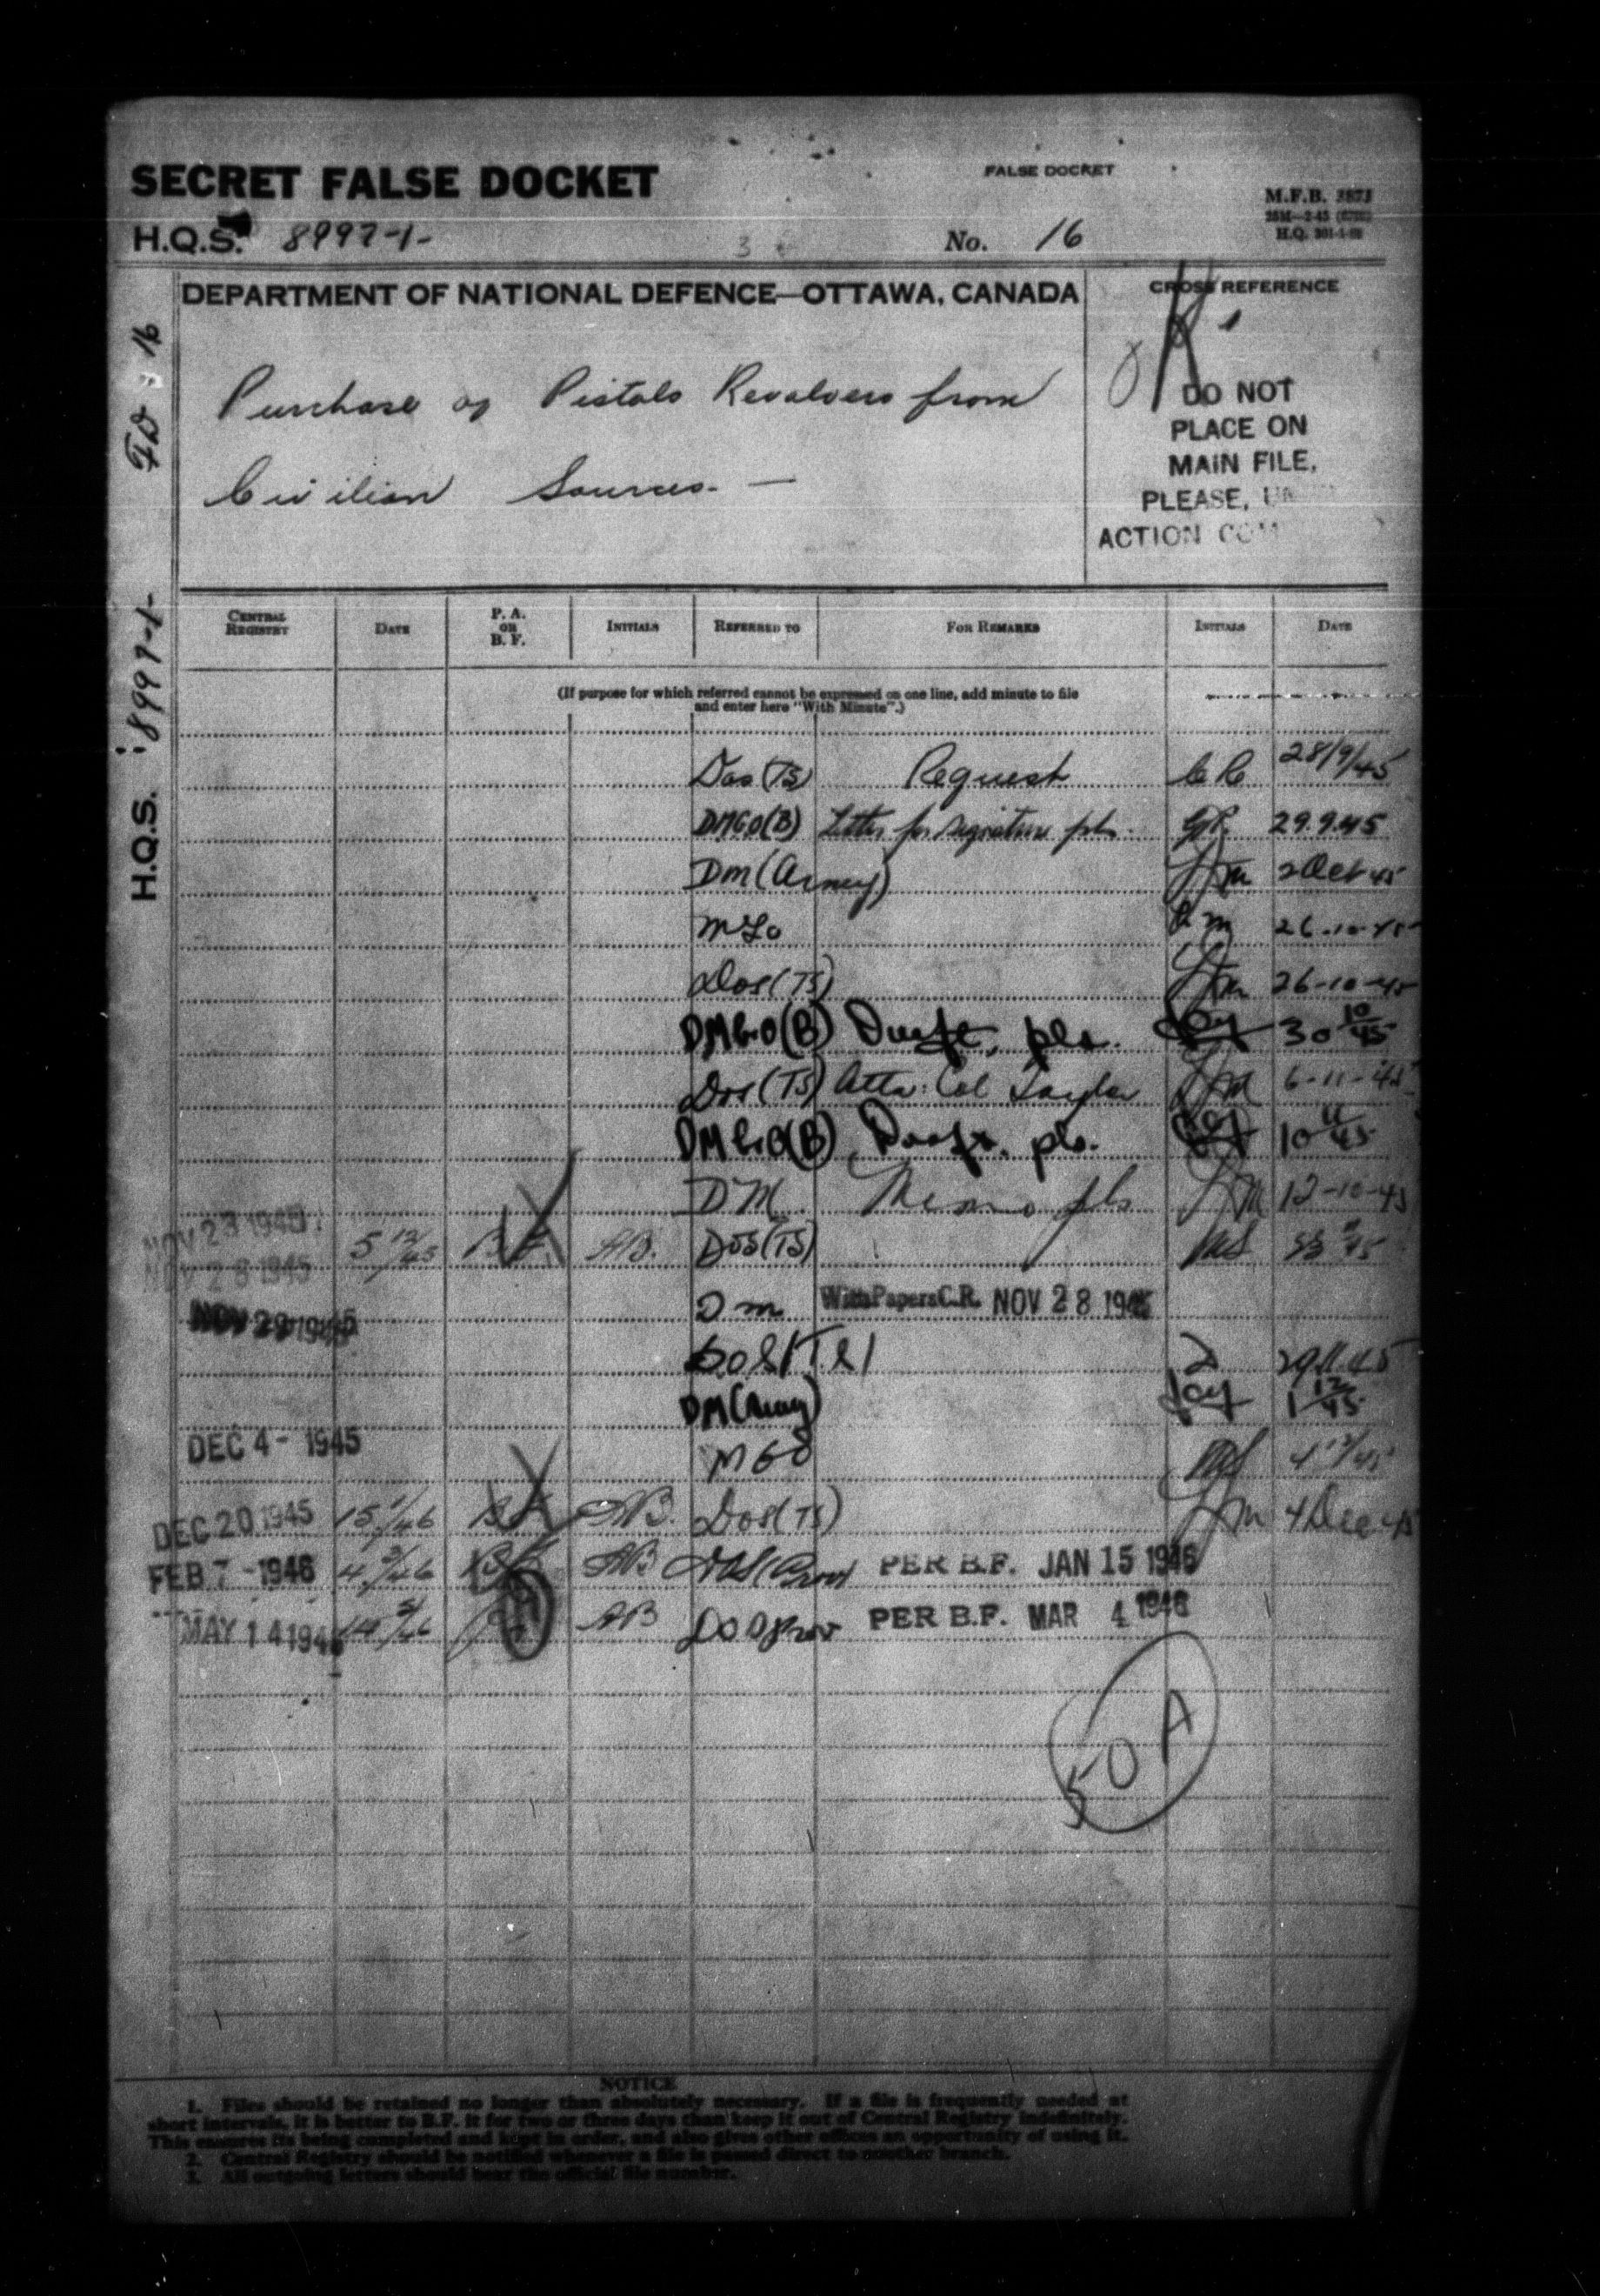 SECRET FALSE DOCKET
FALSE DOCKET
M.F.B.
H.Q.S. 8997-1-
No. 16
DEPARTMENT OF NATIONAL DEFENCE—OTTAWA, CANADA
CROSS REFERENCE
Purchase of Pistols Revolvers from
Civilian Sources. —
DO NOT
PLACE ON
MAIN FILE,
PLEASE,
ACTION
H.Q.S. 8997-1- FD 16
CENTRAL REGISTRY DATE P. A. OR B. F. INITIALS REFERRED TO FOR REMARKS INITIALS DATE
(If purpose for which referred cannot be expressed on one line, add minute to file
and enter here "With Minute".)
Dos (TS) Request CR 28/9/45
DMGO(B) Letter for signature pls. 29.9.45
DM (Army) 2 Oct 45
MGO 26-10-45
Dos (TS) 26-10-45
DMGO(B) Draft, pls. 30 10/45
Dos (TS) Attn: Col Taylor 6-11-45
DMGO(B) Draft, pls. 10 11/45
DM Memo pls 12-10-45
NOV 23 1945
NOV 28 1945 5 12/45 BF AB. DOS(TS)
NOV 29 1945 DM With Papers C.R. NOV 28 1945
29.11.45
DM(Army) 1 12/45
DEC 4 - 1945 MGO 4 12/45
DEC 20 1945 15 1/46 BF AB. Dos (TS) 4 Dec 45
FEB 7 - 1946 4 3/46 BF AB PER B.F. JAN 15 1946
MAY 14 1946 AB PER B.F. MAR 4 1946
50A
NOTICE
1. Files should be retained no longer than absolutely necessary. If a file is frequently needed at
short intervals, it is better to B.F. it for two or three days than keep it out of Central Registry indefinitely.
This ensures its being completed and kept in order, and also gives other offices an opportunity of using it.
2. Central Registry should be notified whenever a file is passed direct to another branch.
3. All outgoing letters should bear the official file number.